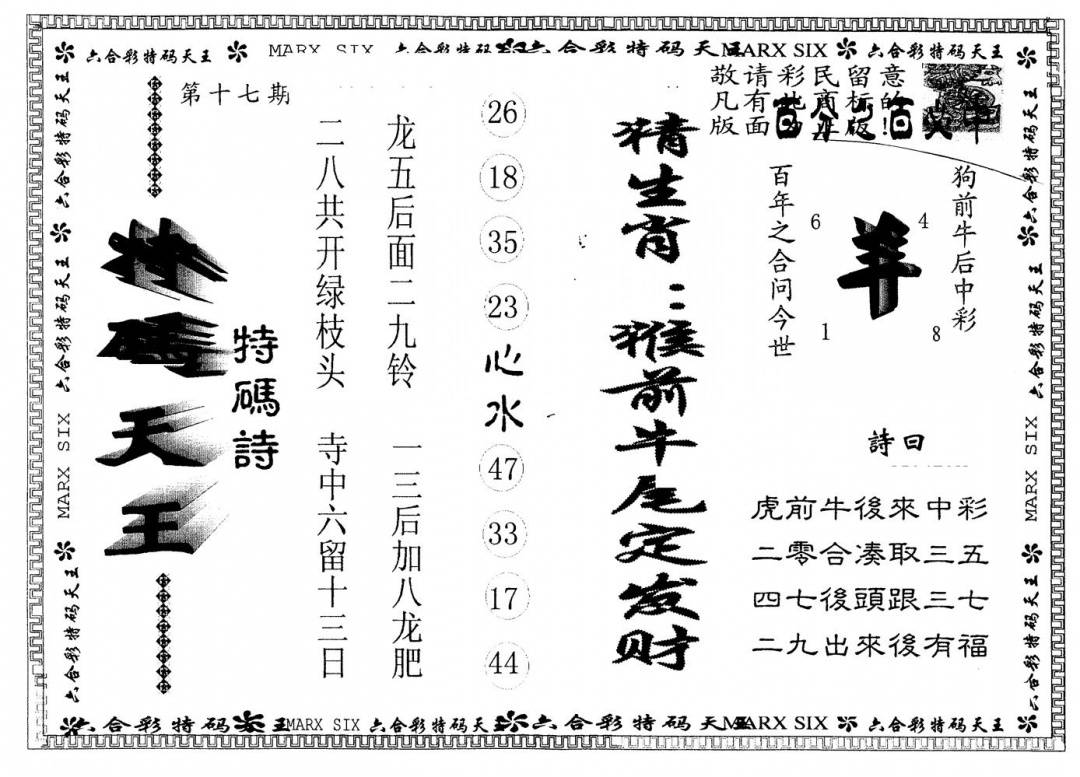 六合彩特码天王 MARX SIX 六合彩特码 六合彩特码天王 MARX SIX 六合彩特码天王
敬请彩民留意
凡有
版面
第十七期
特碼天王
特碼詩
二八共开绿枝头 寺中六留十三日
龙五后面二九铃 一三后加八龙肥
26
18
35
23
心水
47
33
17
44
猜生肖：猴前牛尾定发财
百年之合问今世
6
1
羊
4
8
狗前牛后中彩
詩曰
虎前牛後來中彩
二零合凑取三五
四七後頭跟三七
二九出來後有福
六合彩特码天王 MARX SIX 六合彩特码天王
六合彩特码天王 六合彩特码天王 MARX SIX 六合彩特码天王
六合彩特码天王 MARX SIX 六合彩特码天王 六合彩特码天王 MARX SIX 六合彩特码天王